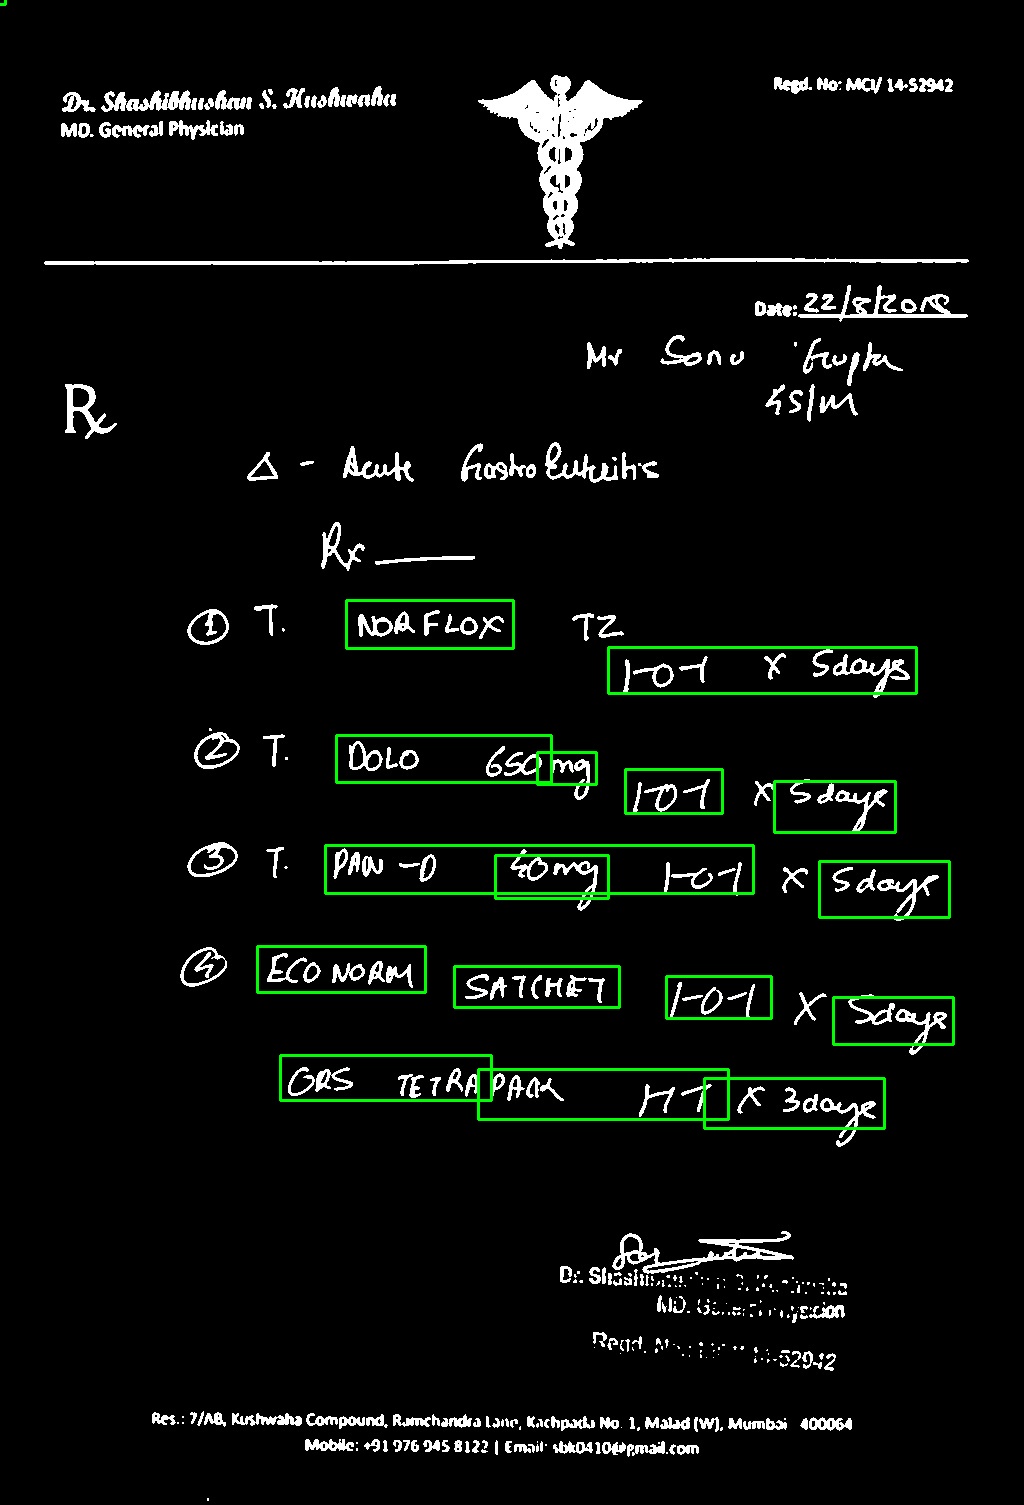 Dr. Shashibhushan S. Kushwaha
MD. General Physician
Regd. No: MCI/ 14-52942
Date: 22/8/2018
Mr Sonu Gupta
45/M
Rx
Δ - Acute Gastro Enteritis
Rx
① T. NORFLOX TZ
1-0-1 X 5days
② T. DOLO 650mg
1-0-1 X 5days
③ T. PAN-D 40mg 1-0-1 X 5days
④ ECONORM SATCHET 1-0-1 X 5days
ORS TETRAPACK 1-1-1 X 3days
Dr. Shashibhushan S. Kushwaha
MD. General Physician
Regd. No.: MCI/ 14-52942
Res.: 7/AB, Kushwaha Compound, Ramchandra Lane, Kachpada No. 1, Malad (W), Mumbai 400064
Mobile: +91 976 945 8122 | Email: sbk0410@gmail.com